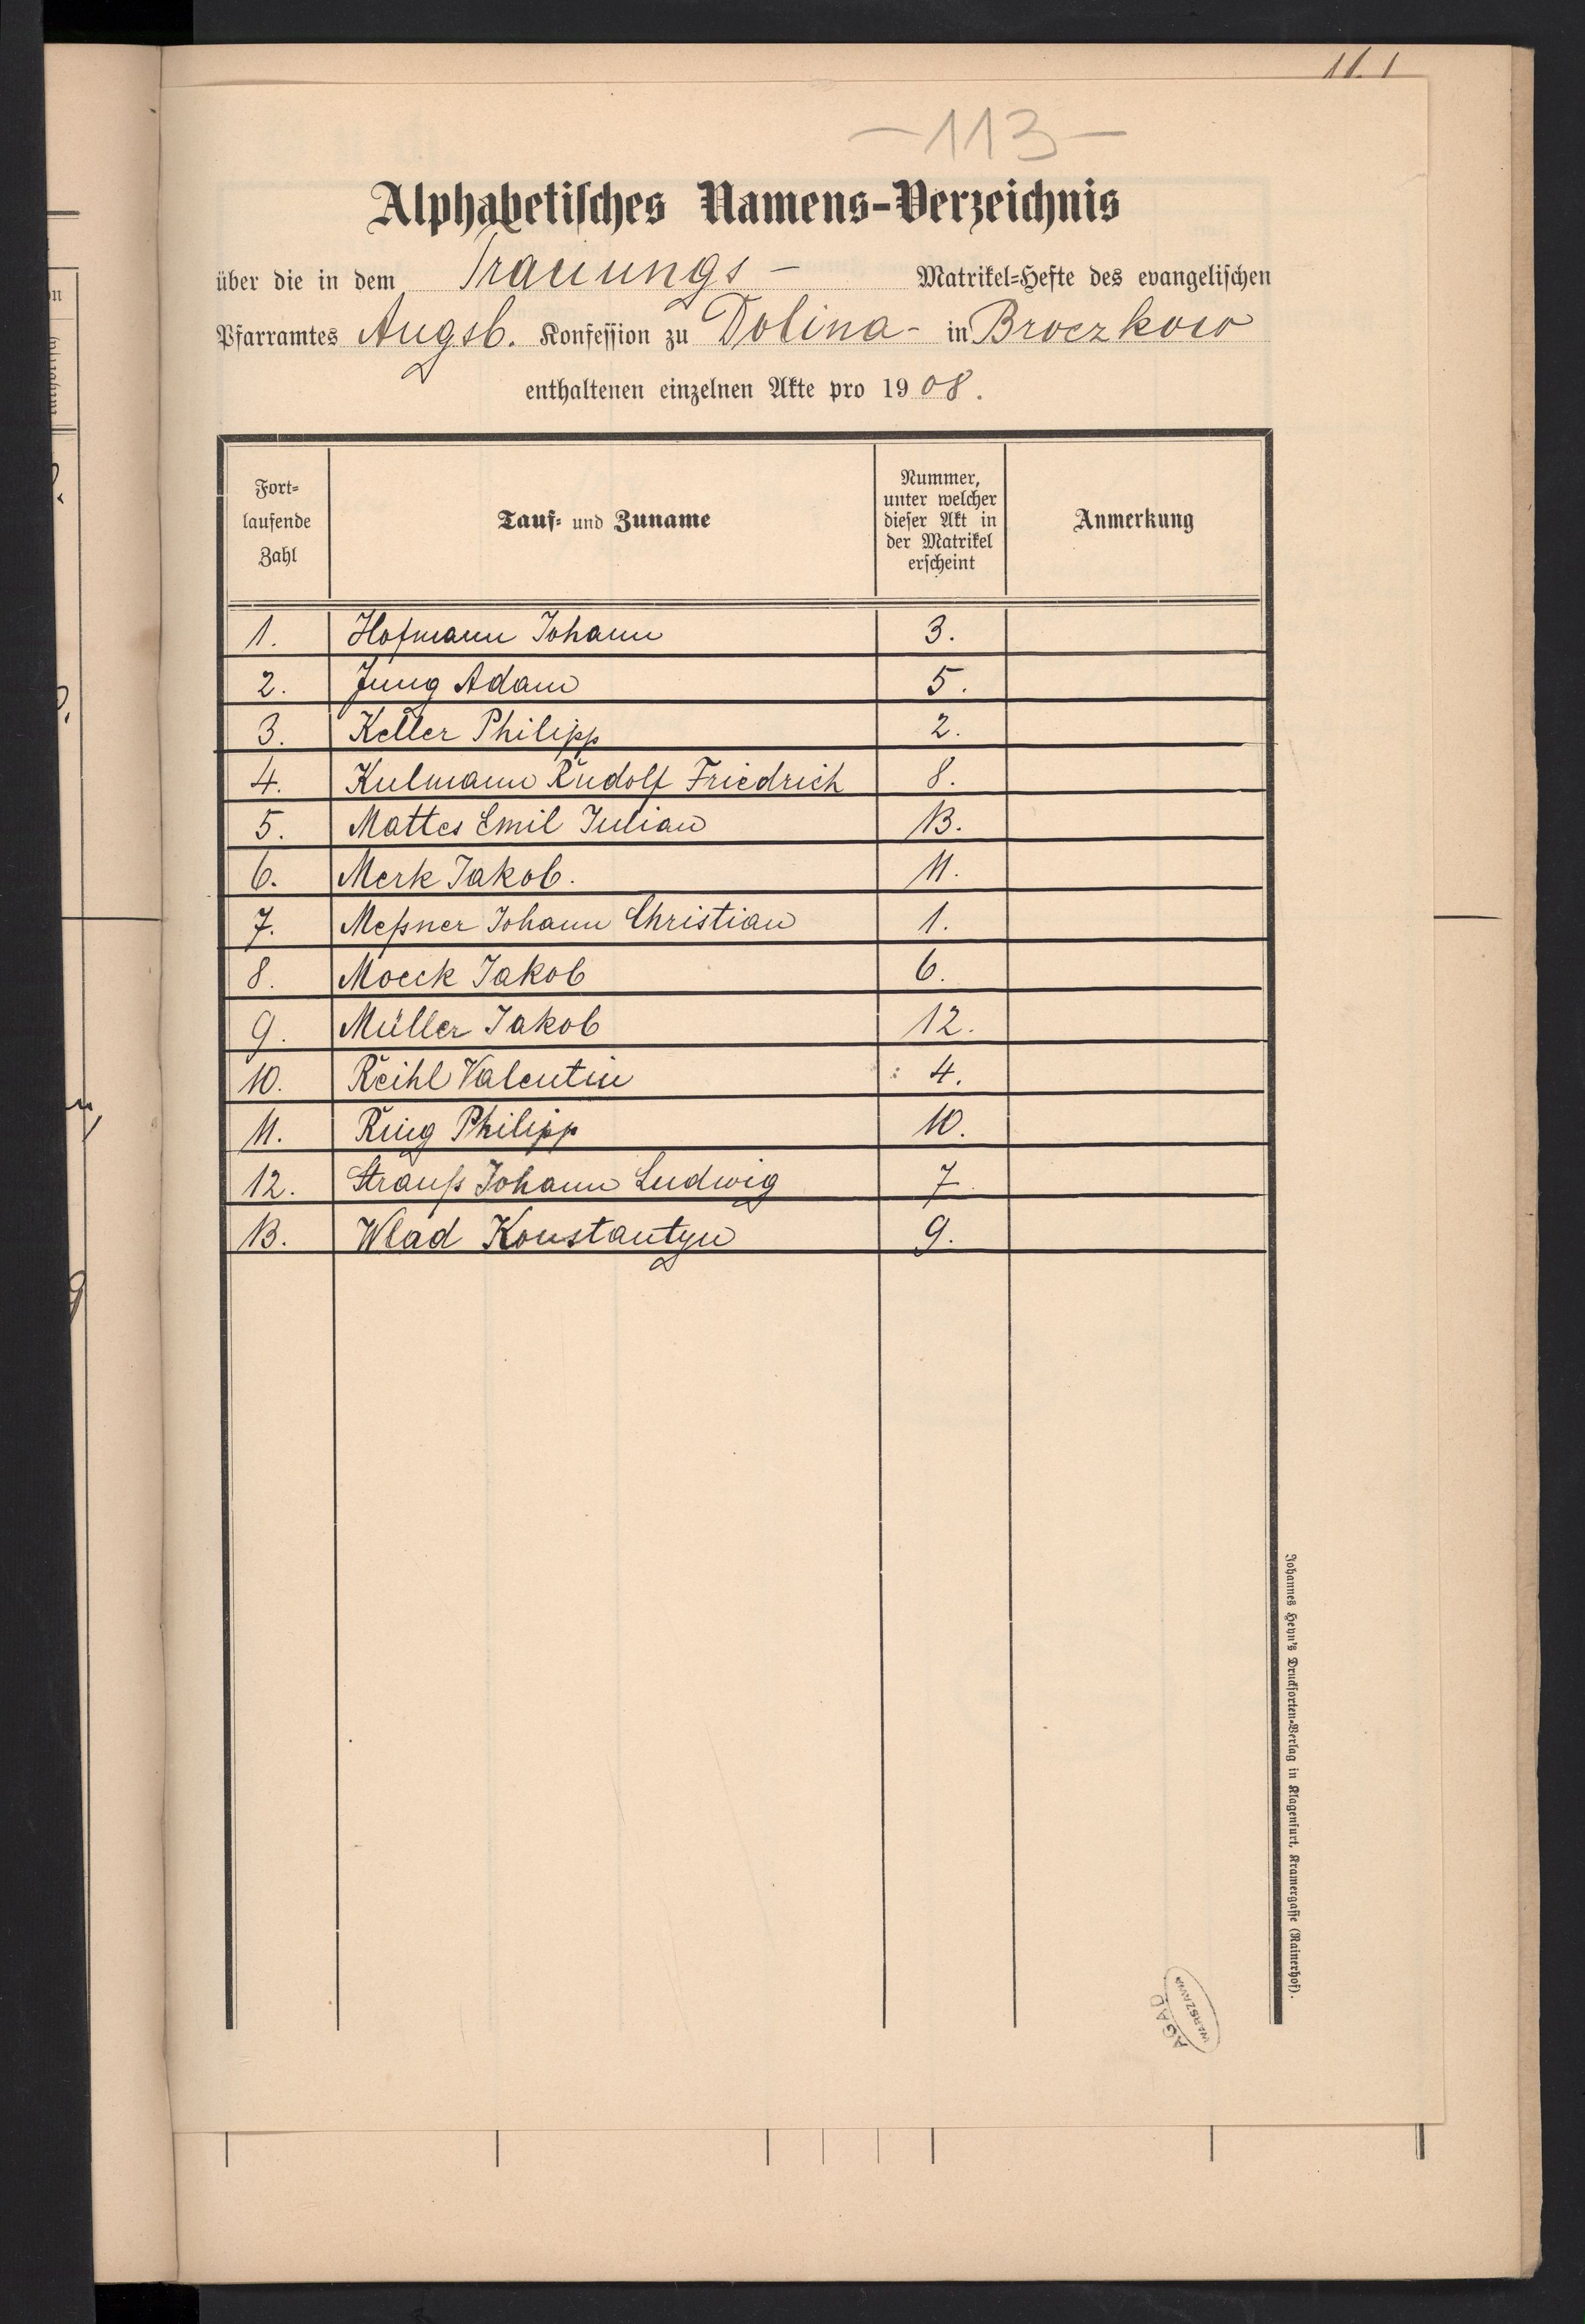 – 113 –
Alphabetisches Namens-Verzeichnis
über die in dem Trauungs – Matrikel-Hefte des evangelischen
Pfarramtes Augsb. Konfession zu Dolina - in Broczkow
enthaltenen einzelnen Akte pro 1908.
Fort-
laufende
Zahl
Tauf- und Zuname
Nummer,
unter welcher
dieser Akt in
der Matrikel
erscheint
Anmerkung
1. Hofmann Johann 3.
2. Jung Adam 5.
3. Keller Philipp 2.
4. Kulmann Rudolf Friedrich 8.
5. Mattes Emil Julian 13.
6. Merk Jakob. 11.
7. Meßner Johann Christian 1.
8. Moeck Jakob 6.
9. Müller Jakob 12.
10. Reihl Valentin 4.
11. Ring Philipp 10.
12. Strauß Johann Ludwig 7.
13. Wlad Konstantyn 9.
Johannes Heyn's Drucksorten-Verlag in Klagenfurt, Kramergasse (Rainerhof).
AGAD
WARSZAWA